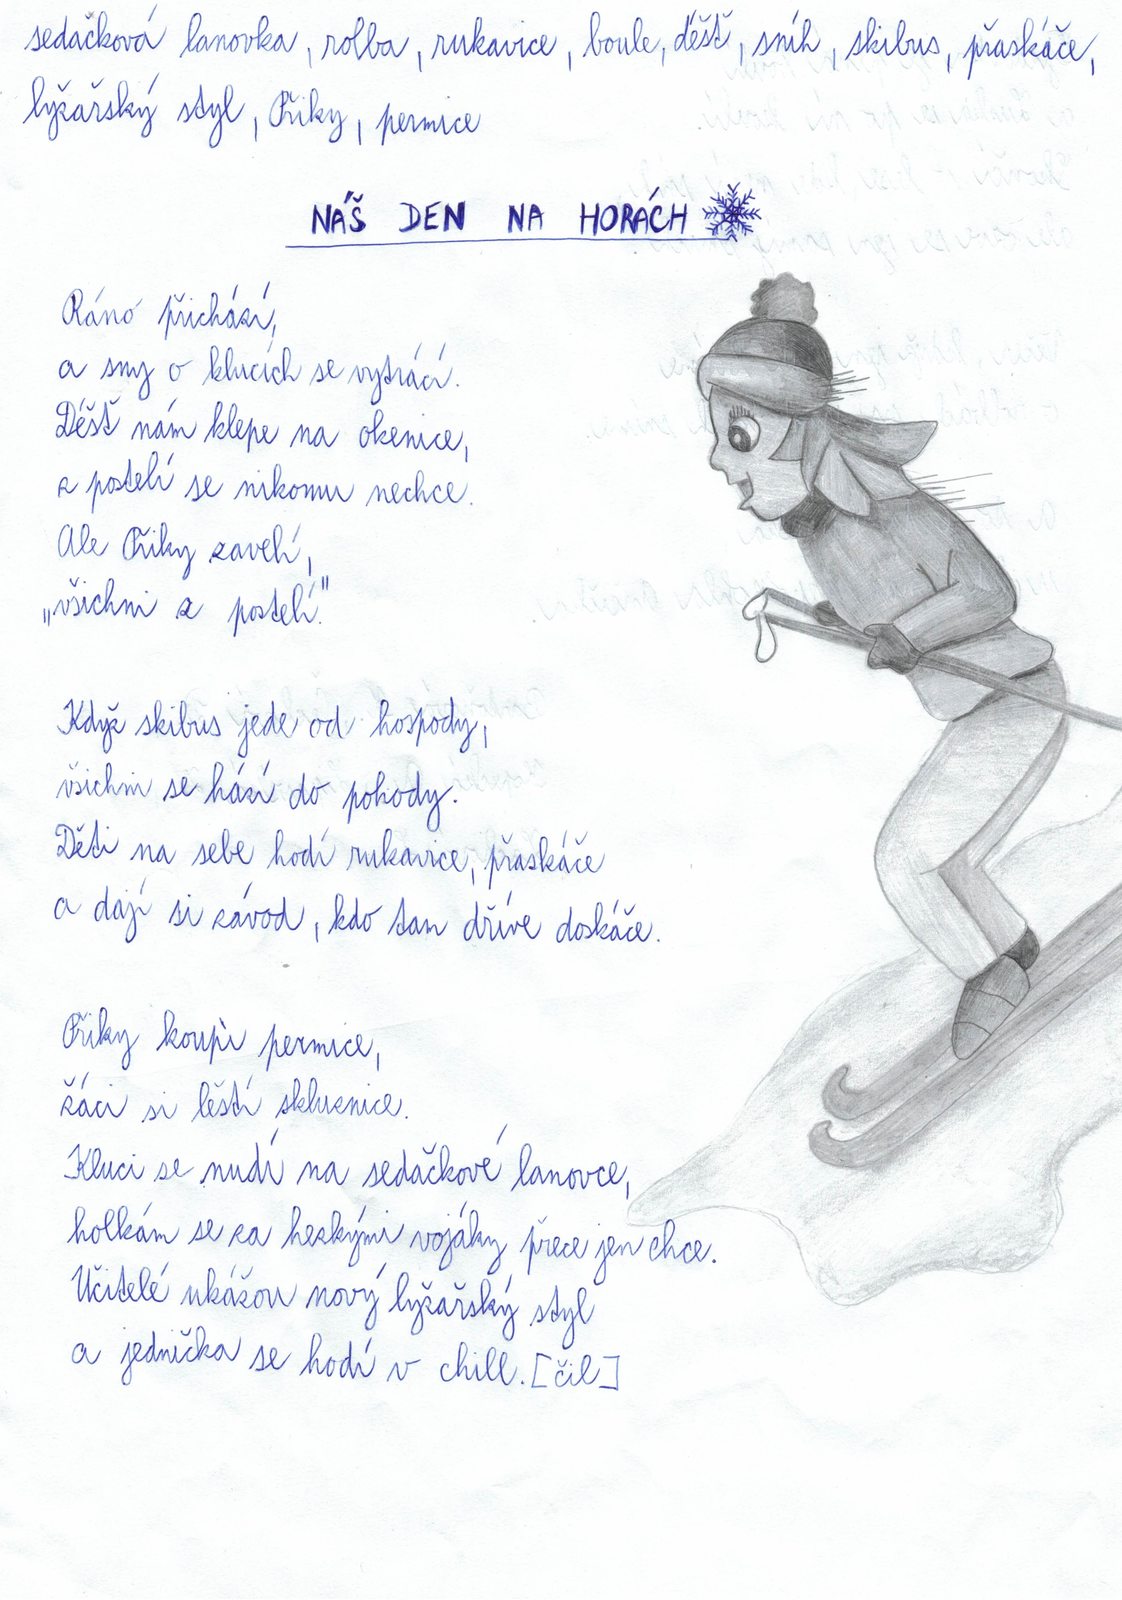 sedačková lanovka, rolba, rukavice, boule, déšť, sníh, skibus, přaskáče,
lyžařský styl, Přiky, permice
NÁŠ DEN NA HORÁCH
Ráno přichází,
a sny o klucích se vytrácí.
Déšť nám klepe na okenice,
z postelí se nikomu nechce.
Ale Přiky zavelí,
„všichni z postelí."
Když skibus jede od hospody,
všichni se hází do pohody.
Děti na sebe hodí rukavice, přaskáče
a dají si závod, kdo tam dříve doskáče.
Přiky koupí permice,
žáci si leští skluznice.
Kluci se nudí na sedačkové lanovce,
holkám se za hezkými vojáky přece jen chce.
Učitelé ukážou nový lyžařský styl
a jednička se hodí v chill. [čil]